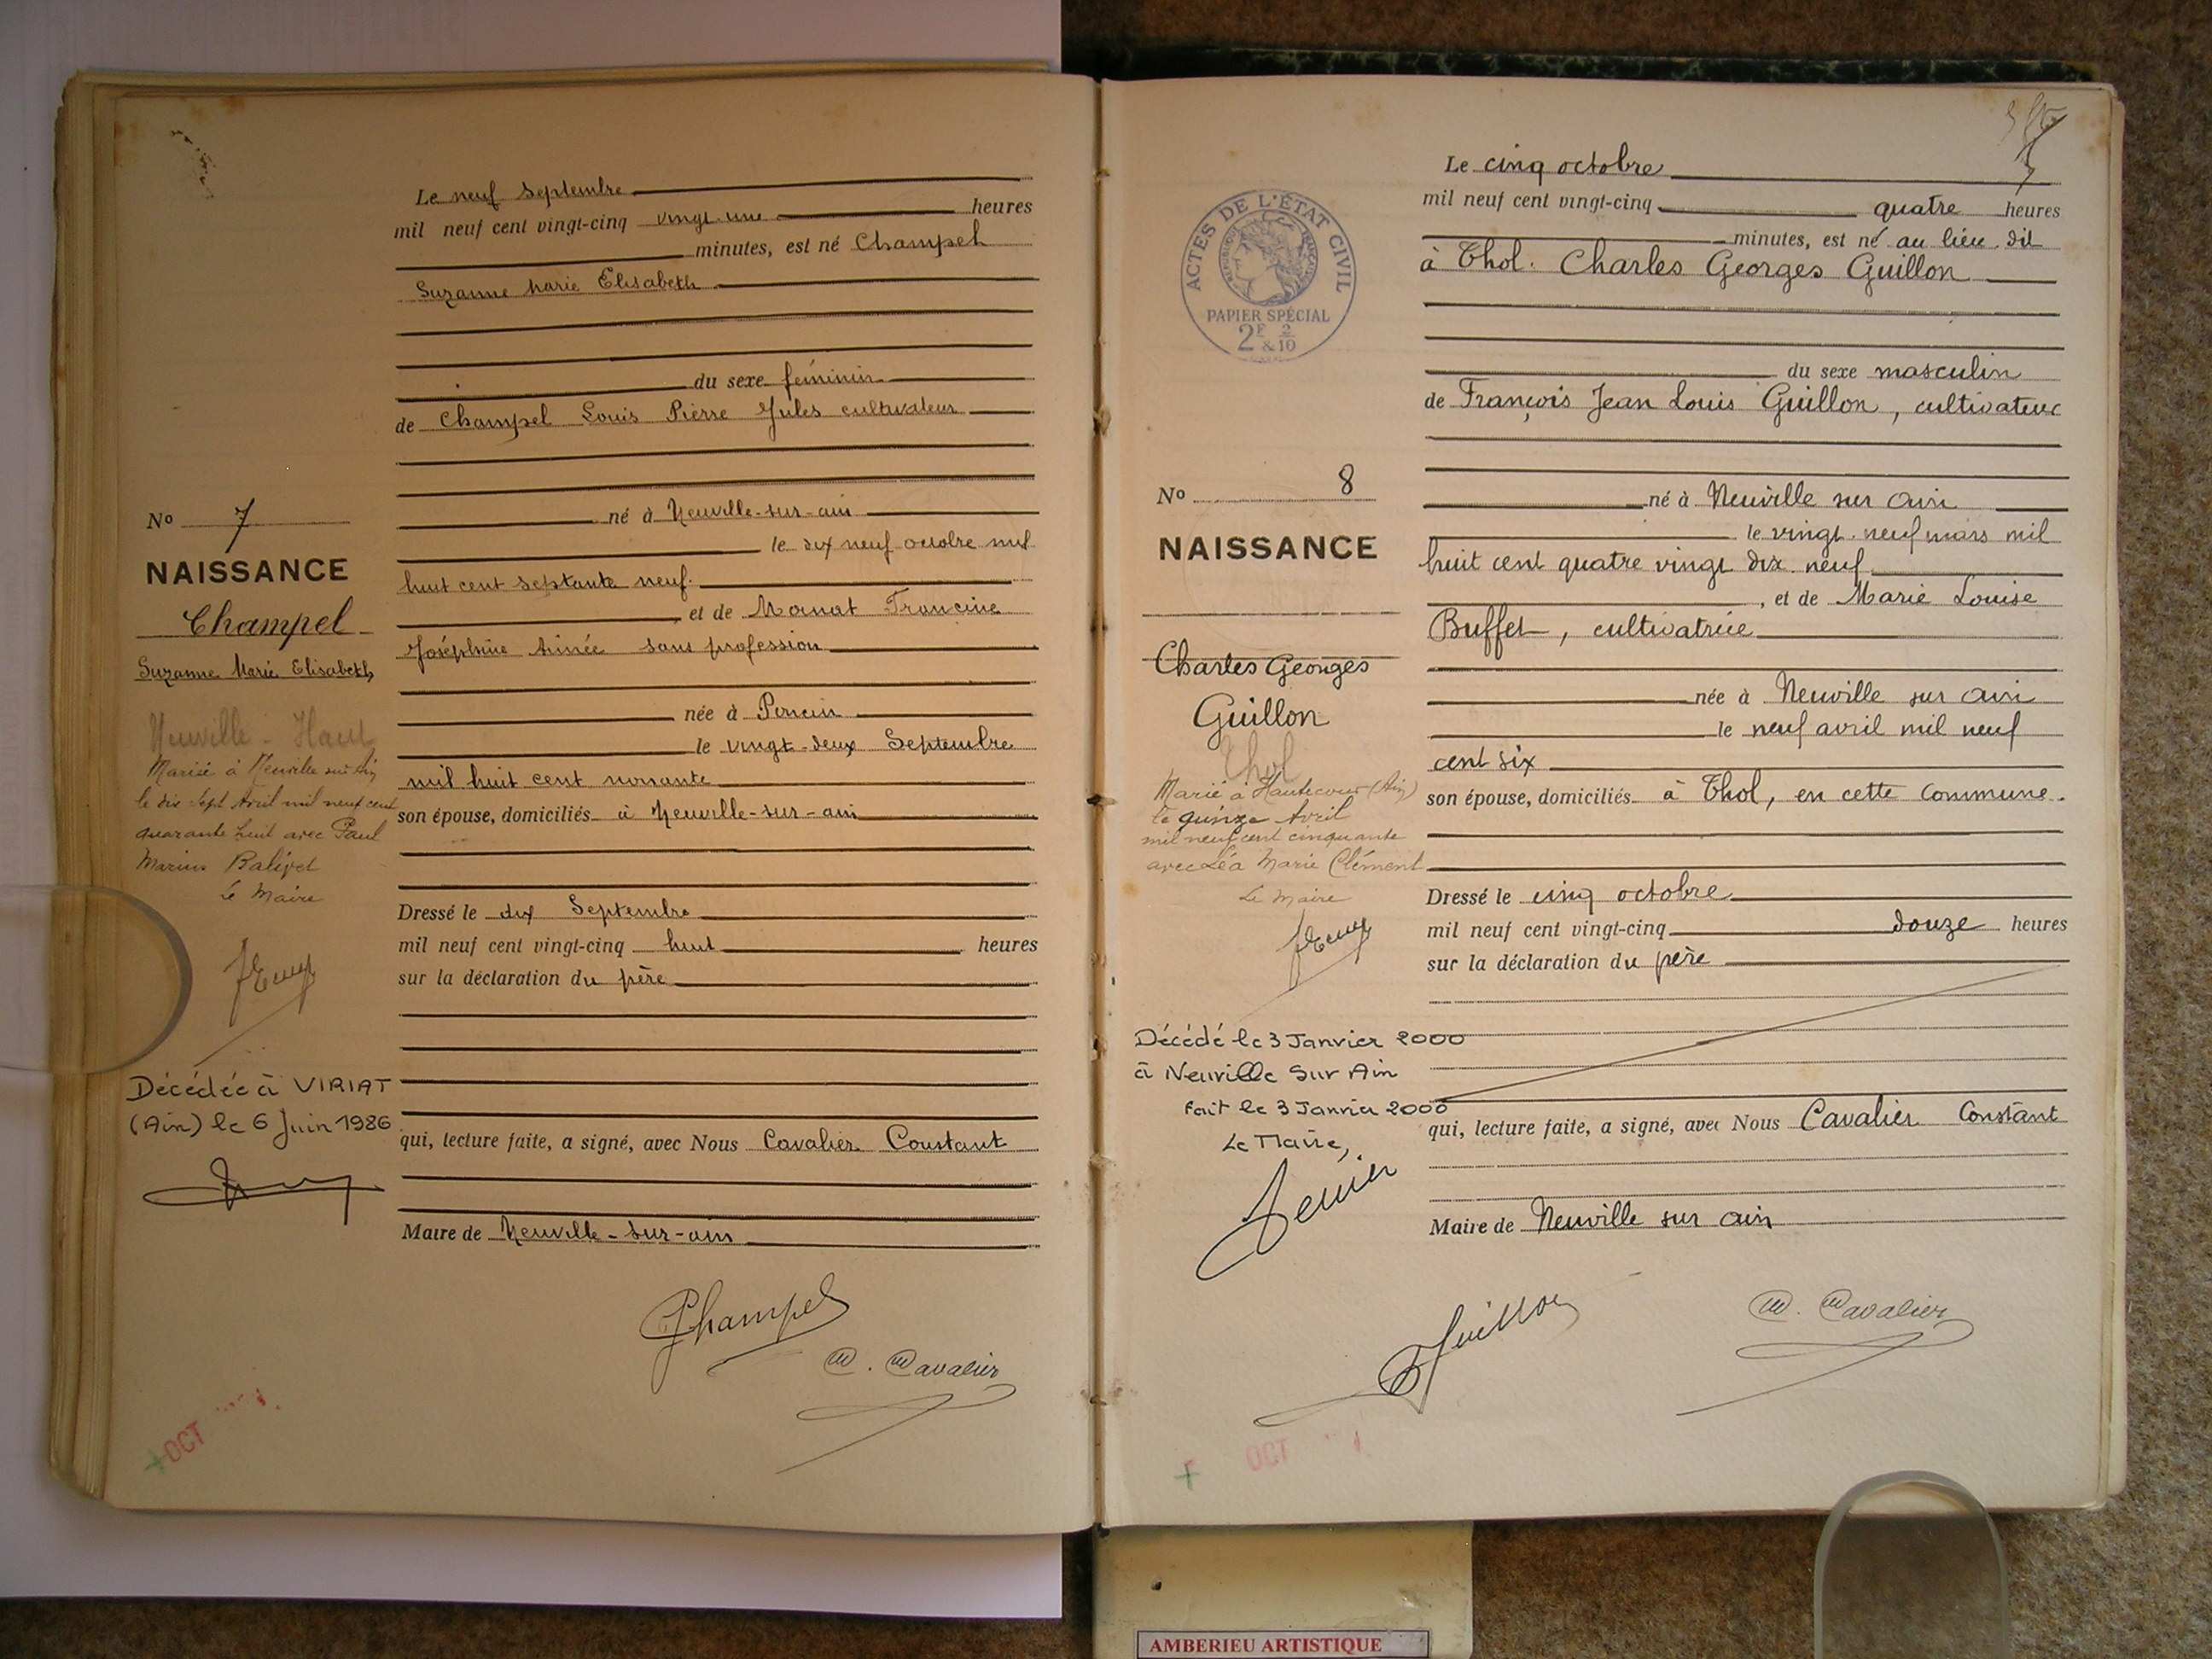 Le neuf Septembre
mil neuf cent vingt-cinq vingt-une heures
minutes, est né Champel
Suzanne Marie Elisabeth
du sexe féminin
de Champel Louis Pierre Jules cultivateur
né à Neuville-sur-ain
le dix neuf octobre mil
huit cent septante neuf.
et de Mornat Francine
Joséphine Aimée sans profession
née à Poncin
le vingt-deux Septembre
mil huit cent nonante
son épouse, domiciliés à Neuville-sur-ain
Dressé le dix Septembre
mil neuf cent vingt-cinq huit heures
sur la déclaration du père
qui, lecture faite, a signé, avec Nous Cavalier Constant
Maire de Neuville-sur-ain
Champel
C. Cavalier
No 7
NAISSANCE
Champel
Suzanne Marie Elisabeth
Neuville - Haut
Mariée à Neuville sur Ain
le dix sept Avril mil neuf cent
quarante huit avec Paul
Marius Balivet
Le Maire
Décédée à VIRIAT
(Ain) le 6 Juin 1986
OCT
Le cinq octobre
mil neuf cent vingt-cinq quatre heures
minutes, est né au lieu dit
à Thol. Charles Georges Guillon
du sexe masculin
de François Jean Louis Guillon, cultivateur
né à Neuville sur ain
le vingt-neuf mars mil
huit cent quatre vingt dix neuf
, et de Marie Louise
Buffet, cultivatrice
née à Neuville sur ain
le neuf avril mil neuf
cent six
son épouse, domiciliés à Thol, en cette commune.
Dressé le cinq octobre
mil neuf cent vingt-cinq douze heures
sur la déclaration du père
qui, lecture faite, a signé, avec Nous Cavalier Constant
Maire de Neuville sur ain
Guillon
C. Cavalier
ACTES DE L'ÉTAT CIVIL
PAPIER SPÉCIAL
2F & 2/10
No 8
NAISSANCE
Charles Georges
Guillon
Thol
Marié à Hautecour (Ain)
le quinze Avril
mil neuf cent cinquante
avec Léa Marie Clément
Le Maire
Décédé le 3 Janvier 2000
à Neuville Sur Ain
Fait le 3 Janvier 2000
Le Maire,
OCT
AMBERIEU ARTISTIQUE